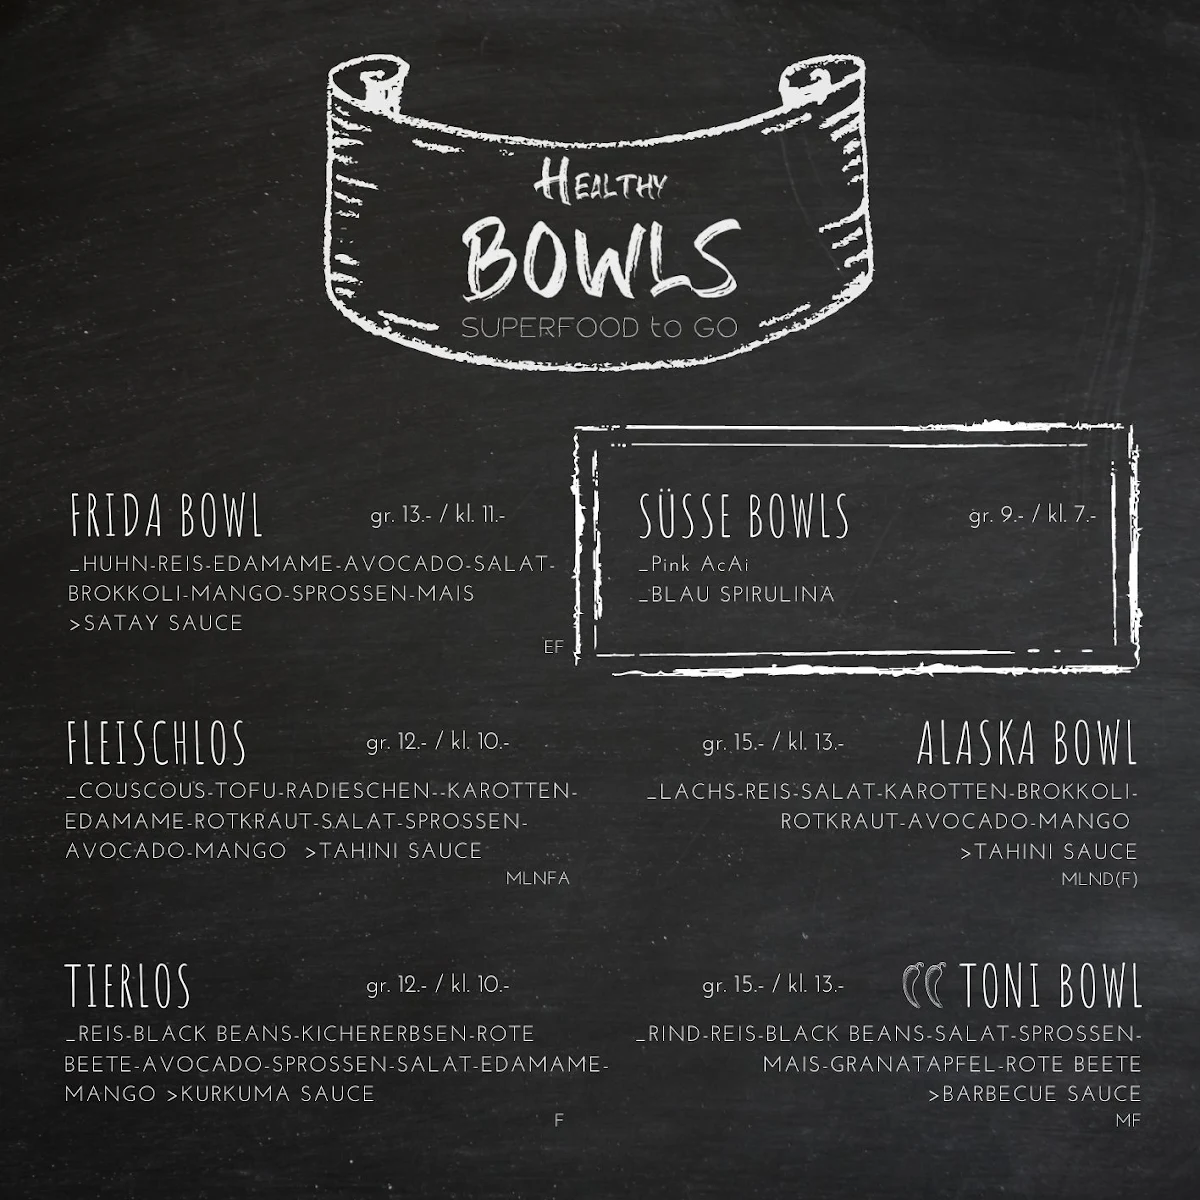 HEALTHY
BOWLS
SUPERFOOD to GO
FRIDA BOWL gr. 13.- / kl. 11.-
_HUHN-REIS-EDAMAME-AVOCADO-SALAT-
BROKKOLI-MANGO-SPROSSEN-MAIS
>SATAY SAUCE
EF
SÜSSE BOWLS gr. 9.- / kl. 7.-
_Pink AcAi
_BLAU SPIRULINA
FLEISCHLOS gr. 12.- / kl. 10.-
_COUSCOUS-TOFU-RADIESCHEN--KAROTTEN-
EDAMAME-ROTKRAUT-SALAT-SPROSSEN-
AVOCADO-MANGO >TAHINI SAUCE
MLNFA
gr. 15.- / kl. 13.- ALASKA BOWL
_LACHS-REIS-SALAT-KAROTTEN-BROKKOLI-
ROTKRAUT-AVOCADO-MANGO
>TAHINI SAUCE
MLND(F)
TIERLOS gr. 12.- / kl. 10.-
_REIS-BLACK BEANS-KICHERERBSEN-ROTE
BEETE-AVOCADO-SPROSSEN-SALAT-EDAMAME-
MANGO >KURKUMA SAUCE
F
gr. 15.- / kl. 13.- TONI BOWL
_RIND-REIS-BLACK BEANS-SALAT-SPROSSEN-
MAIS-GRANATAPFEL-ROTE BEETE
>BARBECUE SAUCE
MF